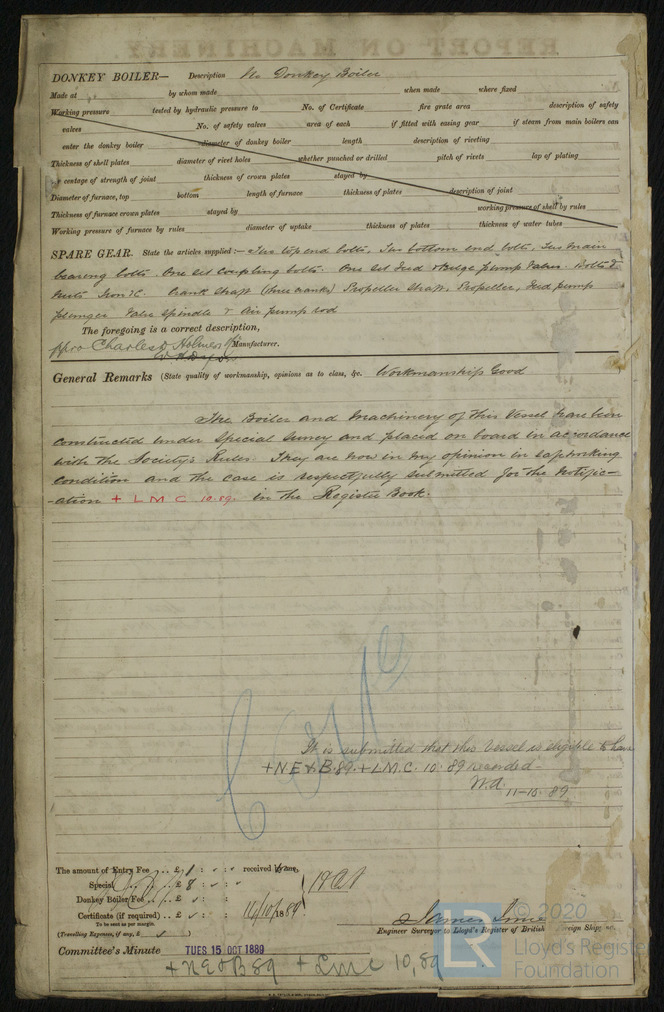 DONKEY BOILER— Description No Donkey Boiler
Made at by whom made when made where fixed
Working pressure tested by hydraulic pressure to No. of Certificate fire grate area description of safety
valves No. of safety valves area of each if fitted with easing gear if steam from main boilers can
enter the donkey boiler diameter of donkey boiler length description of riveting
Thickness of shell plates diameter of rivet holes whether punched or drilled pitch of rivets lap of plating
centage of strength of joint thickness of crown plates stayed by
Diameter of furnace, top bottom length of furnace thickness of plates description of joint
Thickness of furnace crown plates stayed by working pressure of shell by rules
Working pressure of furnace by rules diameter of uptake thickness of plates thickness of water tubes
SPARE GEAR. State the articles supplied:— Two top end bolts, Two bottom end bolts, Two main
bearing bolts. One set Coupling bolts. One set feed & bilge pump valves. Bolts &
Nuts Iron &c. Crank Shaft (three cranks) Propeller Shaft, Propeller, feed pump
plunger Valve Spindle & Air pump rod
The foregoing is a correct description,
ppro Charles D Holmes Manufacturer.
General Remarks (State quality of workmanship, opinions as to class, &c. Workmanship Good
The Boiler and Machinery of this Vessel have been
constructed under special survey and placed on board in accordance
with the Society's Rules. They are now in my opinion in safe working
condition and the case is respectfully submitted for the Notific-
-ation + L M C 10.89. in the Register Book.
It is submitted that this Vessel is eligible to have
+NE & B.89. +LMC. 10.89 recorded
11-10-89
The amount of Entry Fee .. £ 1 : " : " received by me,
Special .. £ 8 : " : "
Donkey Boiler Fee .. £
Certificate (if required) .. £ 14/10/1889
To be sent as per margin.
(Travelling Expenses, if any, £ )
James
Engineer Surveyor to Lloyd's Register of British & Foreign Shipping.
Committee's Minute TUES 15 OCT 1889
+ NE & B 89 + LMC 10,89
LR
© 2020
Lloyd's Register
Foundation